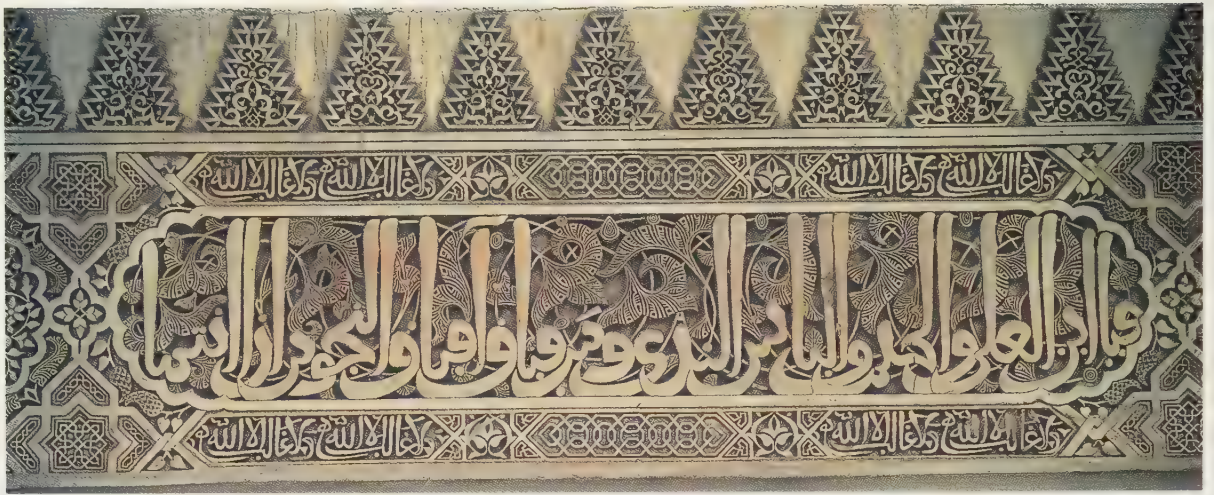 ولا غالب إلا الله ولا غالب إلا الله ولا غالب إلا الله ولا غالب إلا الله
فيا ابن العلا والحلم والباس والندى ومن فاق آفاق النجوم إذا انتمى
ولا غالب إلا الله ولا غالب إلا الله ولا غالب إلا الله ولا غالب إلا الله